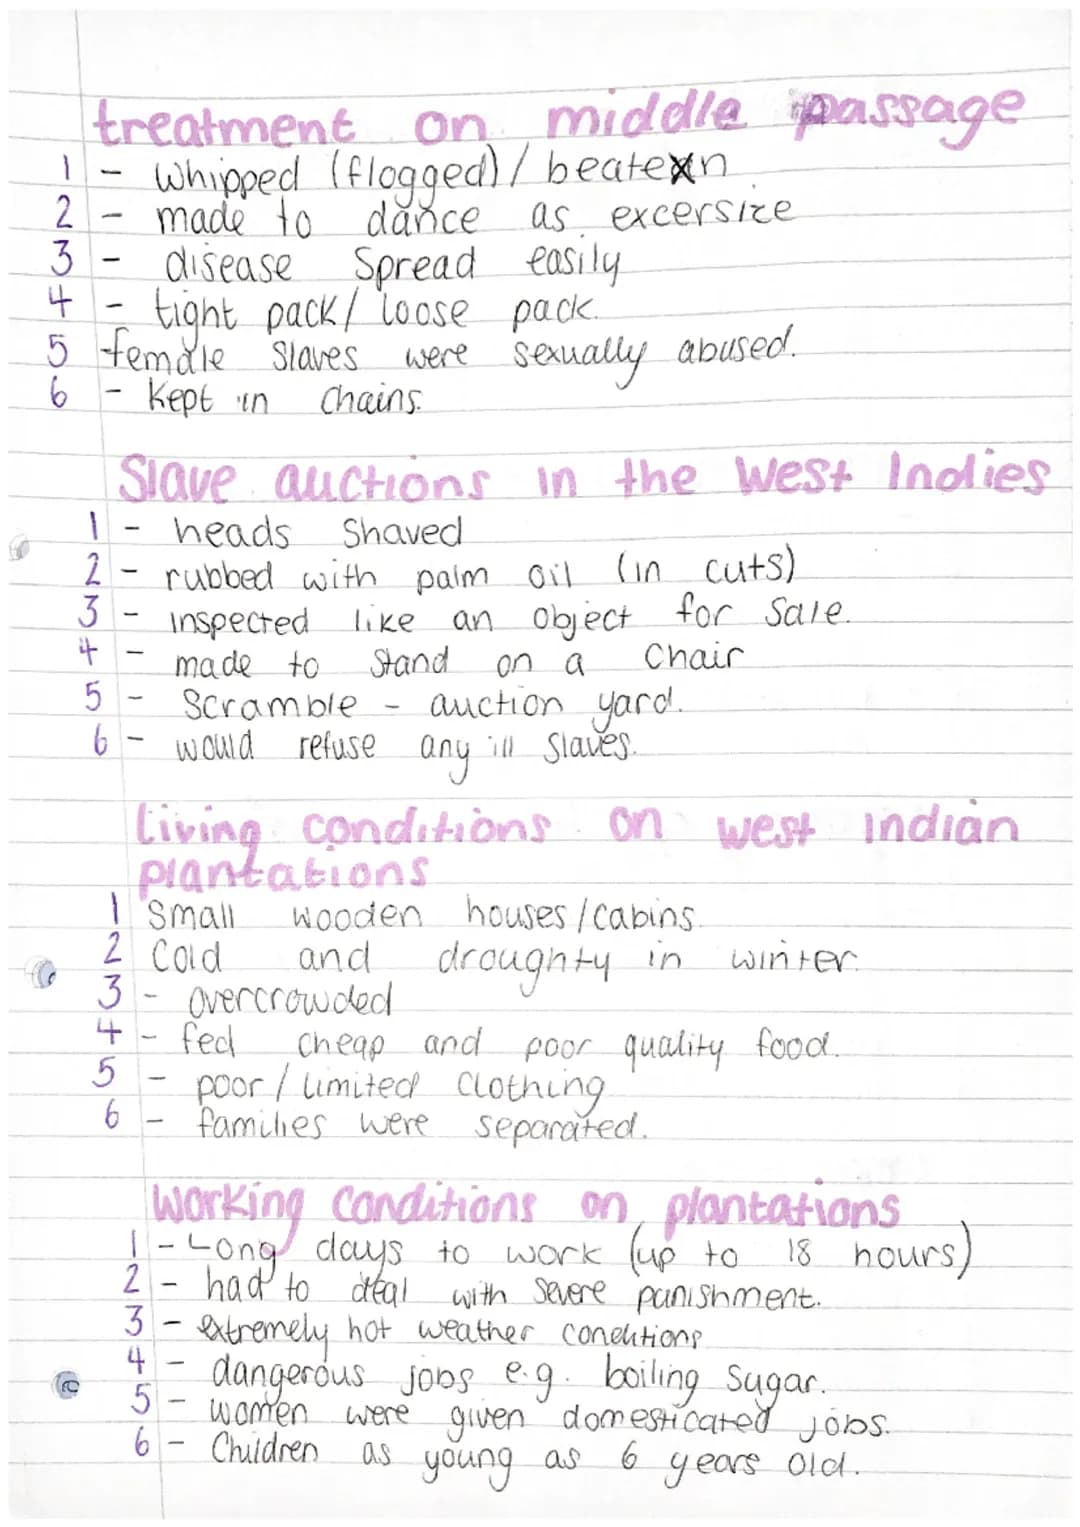 treatment on middle passage
1 - whipped (flogged) / beaten
2 - made to dance as excersize
3 - disease spread easily
4 - tight pack / loose pack.
5 - female slaves were sexually abused.
6 - kept in chains.
Slave auctions in the West Indies
1 - heads shaved
2 - rubbed with palm oil (in cuts)
3 - inspected like an object for sale.
4 - made to stand on a chair
5 - Scramble - auction yard.
6 - would refuse any ill slaves.
Living conditions on west indian
plantations
1 Small wooden houses / cabins.
2 Cold and droughty in winter.
3 - overcrowded
4 - fed cheap and poor quality food.
5 - poor / limited clothing
6 - families were separated.
Working conditions on plantations
1 - Long days to work (up to 18 hours)
2 - had to deal with severe punishment.
3 - extremely hot weather conditions
4 - dangerous jobs e.g. boiling sugar.
5 - women were given domesticated jobs.
6 - Children as young as 6 years old.